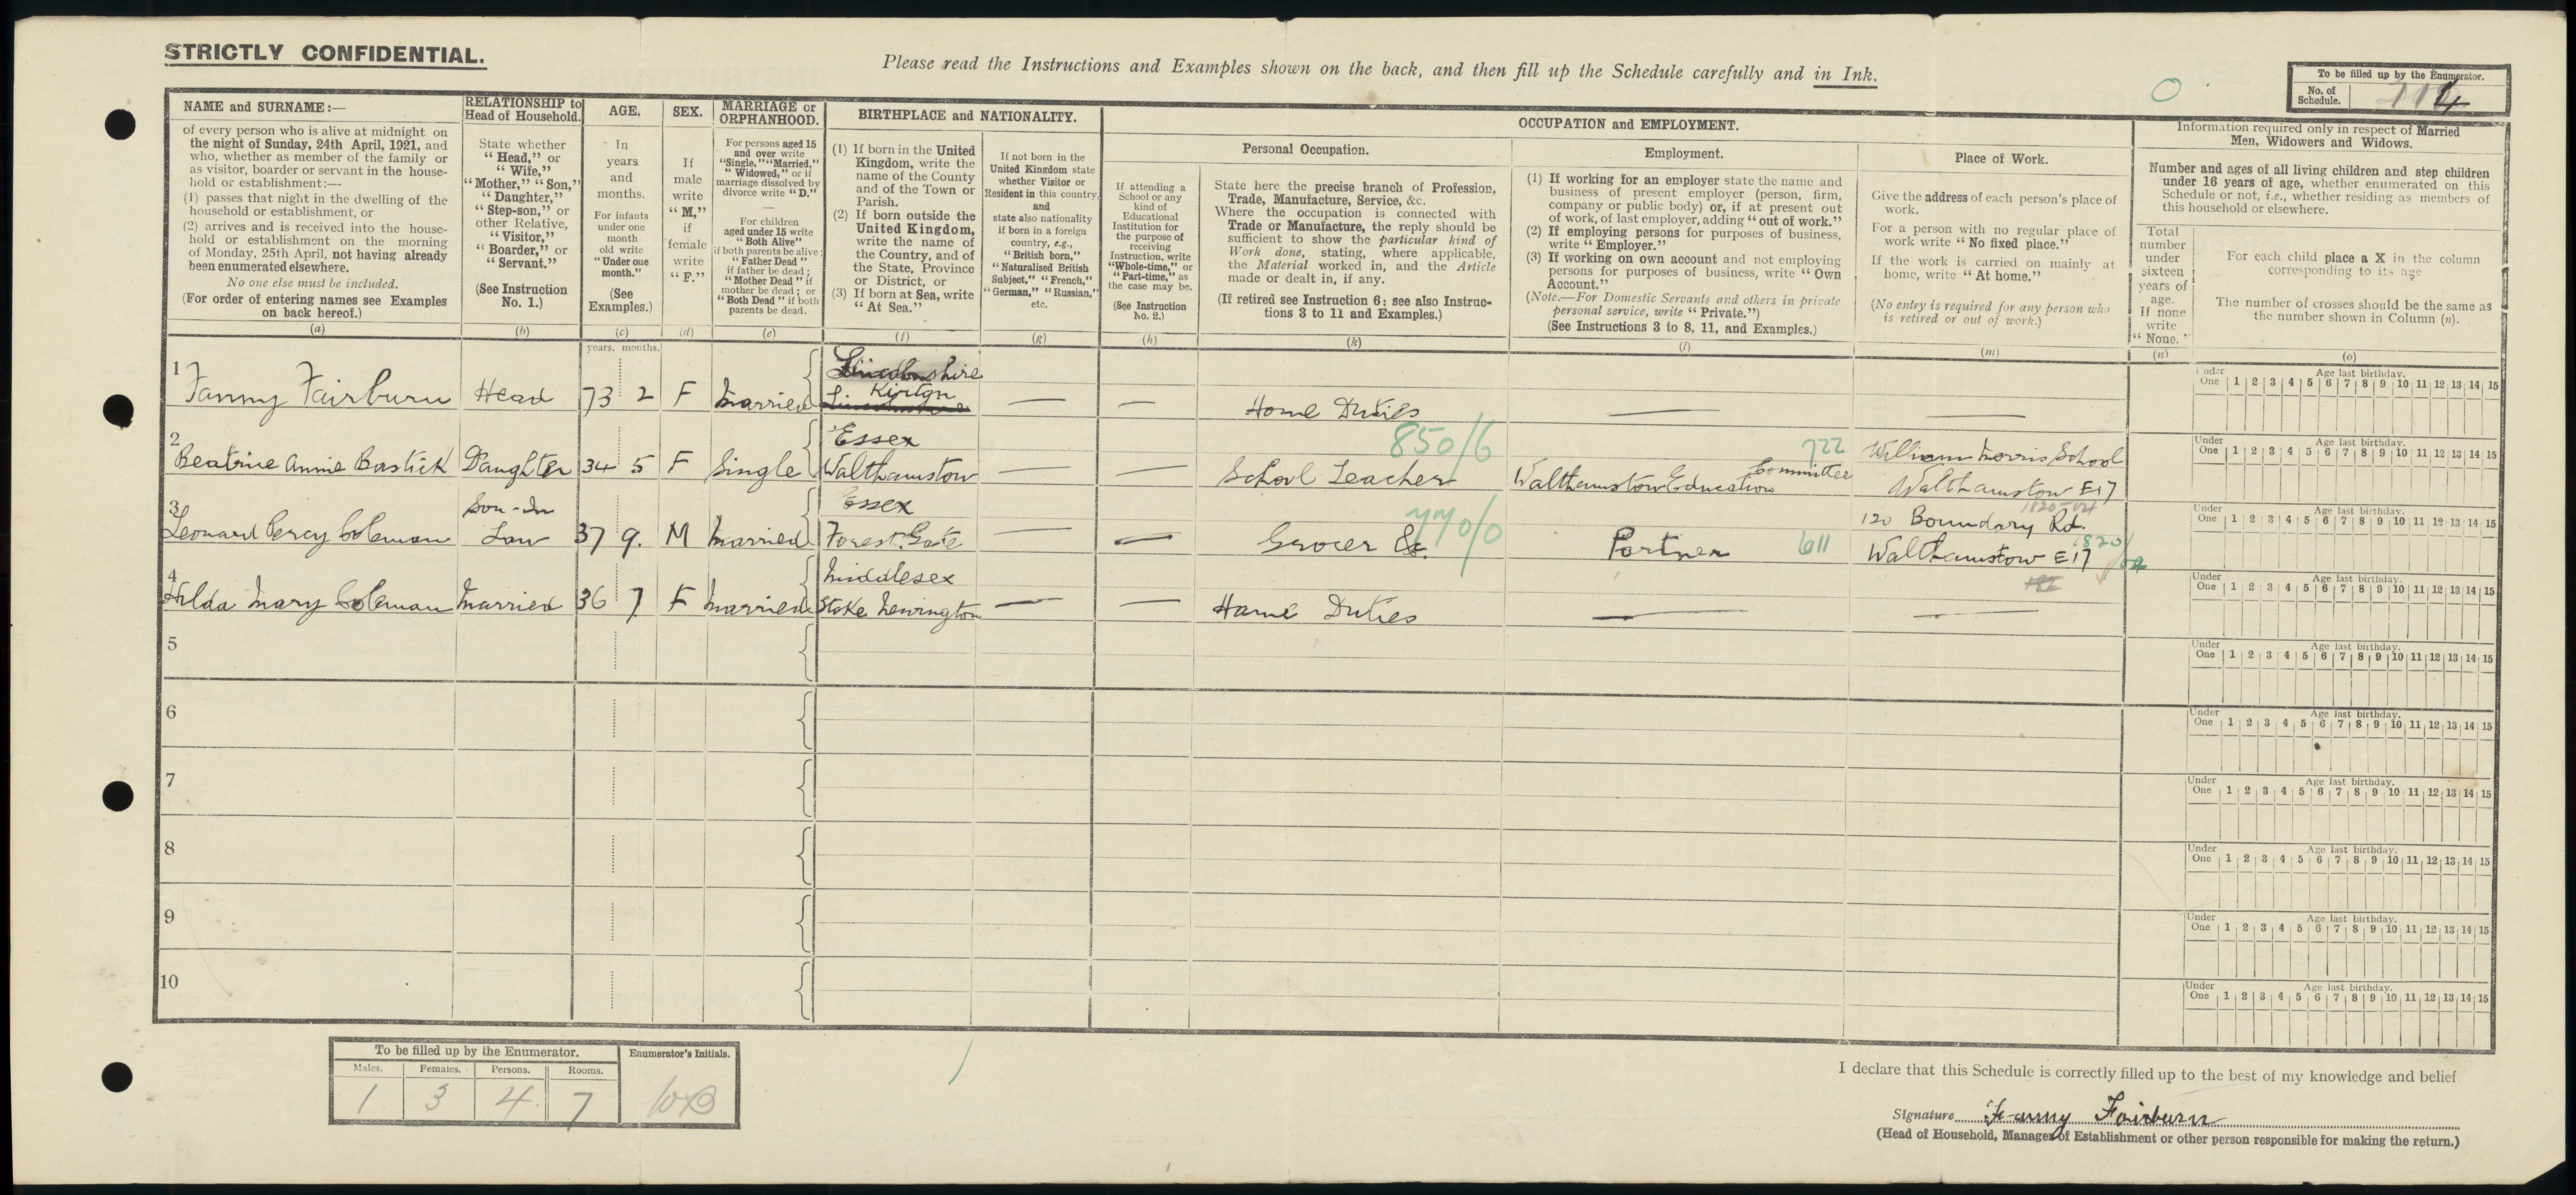 STRICTLY CONFIDENTIAL.
Please read the Instructions and Examples shown on the back, and then fill up the Schedule carefully and in Ink.
To be filled up by the Enumerator.
No. of Schedule. 4
NAME and SURNAME:—
of every person who is alive at midnight on
the night of Sunday, 24th April, 1921, and
who, whether as member of the family or
as visitor, boarder or servant in the house-
hold or establishment:—
(1) passes that night in the dwelling of the
household or establishment, or
(2) arrives and is received into the house-
hold or establishment on the morning
of Monday, 25th April, not having already
been enumerated elsewhere.
No one else must be included.
(For order of entering names see Examples
on back hereof.)
(a)
RELATIONSHIP to
Head of Household.
State whether
“Head,” or
“Wife,”
“Mother,” “Son,”
“Daughter,”
“Step-son,” or
other Relative,
“Visitor,”
“Boarder,” or
“Servant.”
(See Instruction
No. 1.)
(b)
AGE.
In
years
and
months.
For infants
under one
month
old write
“Under one
month.”
(See
Examples.)
(c)
SEX.
If
male
write
“M,”
if
female
write
“F.”
(d)
MARRIAGE or
ORPHANHOOD.
For persons aged 15
and over write
“Single,” “Married,”
“Widowed,” or if
marriage dissolved by
divorce write “D.”
—
For children
aged under 15 write
“Both Alive”
if both parents be alive;
“Father Dead”
if father be dead;
“Mother Dead” if
mother be dead; or
“Both Dead” if both
parents be dead.
(e)
BIRTHPLACE and NATIONALITY.
(1) If born in the United
Kingdom, write the
name of the County
and of the Town or
Parish.
(2) If born outside the
United Kingdom,
write the name of
the Country, and of
the State, Province
or District, or
(3) If born at Sea, write
“At Sea.”
(f)
If not born in the
United Kingdom state
whether Visitor or
Resident in this country,
and
state also nationality
if born in a foreign
country, e.g.,
“British born,”
“Naturalised British
Subject,” “French,”
“German,” “Russian,”
etc.
(g)
OCCUPATION and EMPLOYMENT.
Personal Occupation.
If attending a
School or any
kind of
Educational
Institution for
the purpose of
receiving
Instruction, write
“Whole-time,” or
“Part-time,” as
the case may be.
(See Instruction
No. 2.)
(h)
State here the precise branch of Profession,
Trade, Manufacture, Service, &c.
Where the occupation is connected with
Trade or Manufacture, the reply should be
sufficient to show the particular kind of
Work done, stating, where applicable,
the Material worked in, and the Article
made or dealt in, if any.
(If retired see Instruction 6: see also Instruc-
tions 3 to 11 and Examples.)
(k)
Employment.
(1) If working for an employer state the name and
business of present employer (person, firm,
company or public body) or, if at present out
of work, of last employer, adding “out of work.”
(2) If employing persons for purposes of business,
write “Employer.”
(3) If working on own account and not employing
persons for purposes of business, write “Own
Account.”
(Note.—For Domestic Servants and others in private
personal service, write “Private.”)
(See Instructions 3 to 8, 11, and Examples.)
(l)
Place of Work.
Give the address of each person's place of
work.
For a person with no regular place of
work write “No fixed place.”
If the work is carried on mainly at
home, write “At home.”
(No entry is required for any person who
is retired or out of work.)
(m)
Information required only in respect of Married
Men, Widowers and Widows.
Number and ages of all living children and step children
under 16 years of age, whether enumerated on this
Schedule or not, i.e., whether residing as members of
this household or elsewhere.
Total
number
under
sixteen
years of
age.
If none
write
“None.”
(n)
For each child place a X in the column
corresponding to its age
The number of crosses should be the same as
the number shown in Column (n).
(o)
years. months.
1 Fanny Fairburn Head 73 2 F Married Lincolnshire Kirton — — Home Duties — —
Under One Age last birthday. 1 2 3 4 5 6 7 8 9 10 11 12 13 14 15
2 Beatrice Annie Bastick Daughter 34 5 F Single Essex Walthamstow — — School Teacher 850/6 Walthamstow Education Committee 722 William Morris School Walthamstow E17
Under One Age last birthday. 1 2 3 4 5 6 7 8 9 10 11 12 13 14 15
3 Leonard Percy Coleman Son-in Law 37 9. M Married Essex Forest Gate — — Grocer &c. 770/0 Partner 611 120 Boundary Rd. Walthamstow E17
Under One Age last birthday. 1 2 3 4 5 6 7 8 9 10 11 12 13 14 15
4 Hilda Mary Coleman Married 36 7 F Married Middlesex Stoke Newington — — Home Duties — —
Under One Age last birthday. 1 2 3 4 5 6 7 8 9 10 11 12 13 14 15
5
Under One Age last birthday. 1 2 3 4 5 6 7 8 9 10 11 12 13 14 15
6
Under One Age last birthday. 1 2 3 4 5 6 7 8 9 10 11 12 13 14 15
7
Under One Age last birthday. 1 2 3 4 5 6 7 8 9 10 11 12 13 14 15
8
Under One Age last birthday. 1 2 3 4 5 6 7 8 9 10 11 12 13 14 15
9
Under One Age last birthday. 1 2 3 4 5 6 7 8 9 10 11 12 13 14 15
10
Under One Age last birthday. 1 2 3 4 5 6 7 8 9 10 11 12 13 14 15
To be filled up by the Enumerator.
Enumerator's Initials.
Males. Females. Persons. Rooms.
1 3 4 7
I declare that this Schedule is correctly filled up to the best of my knowledge and belief
Signature Fanny Fairburn
(Head of Household, Manager of Establishment or other person responsible for making the return.)